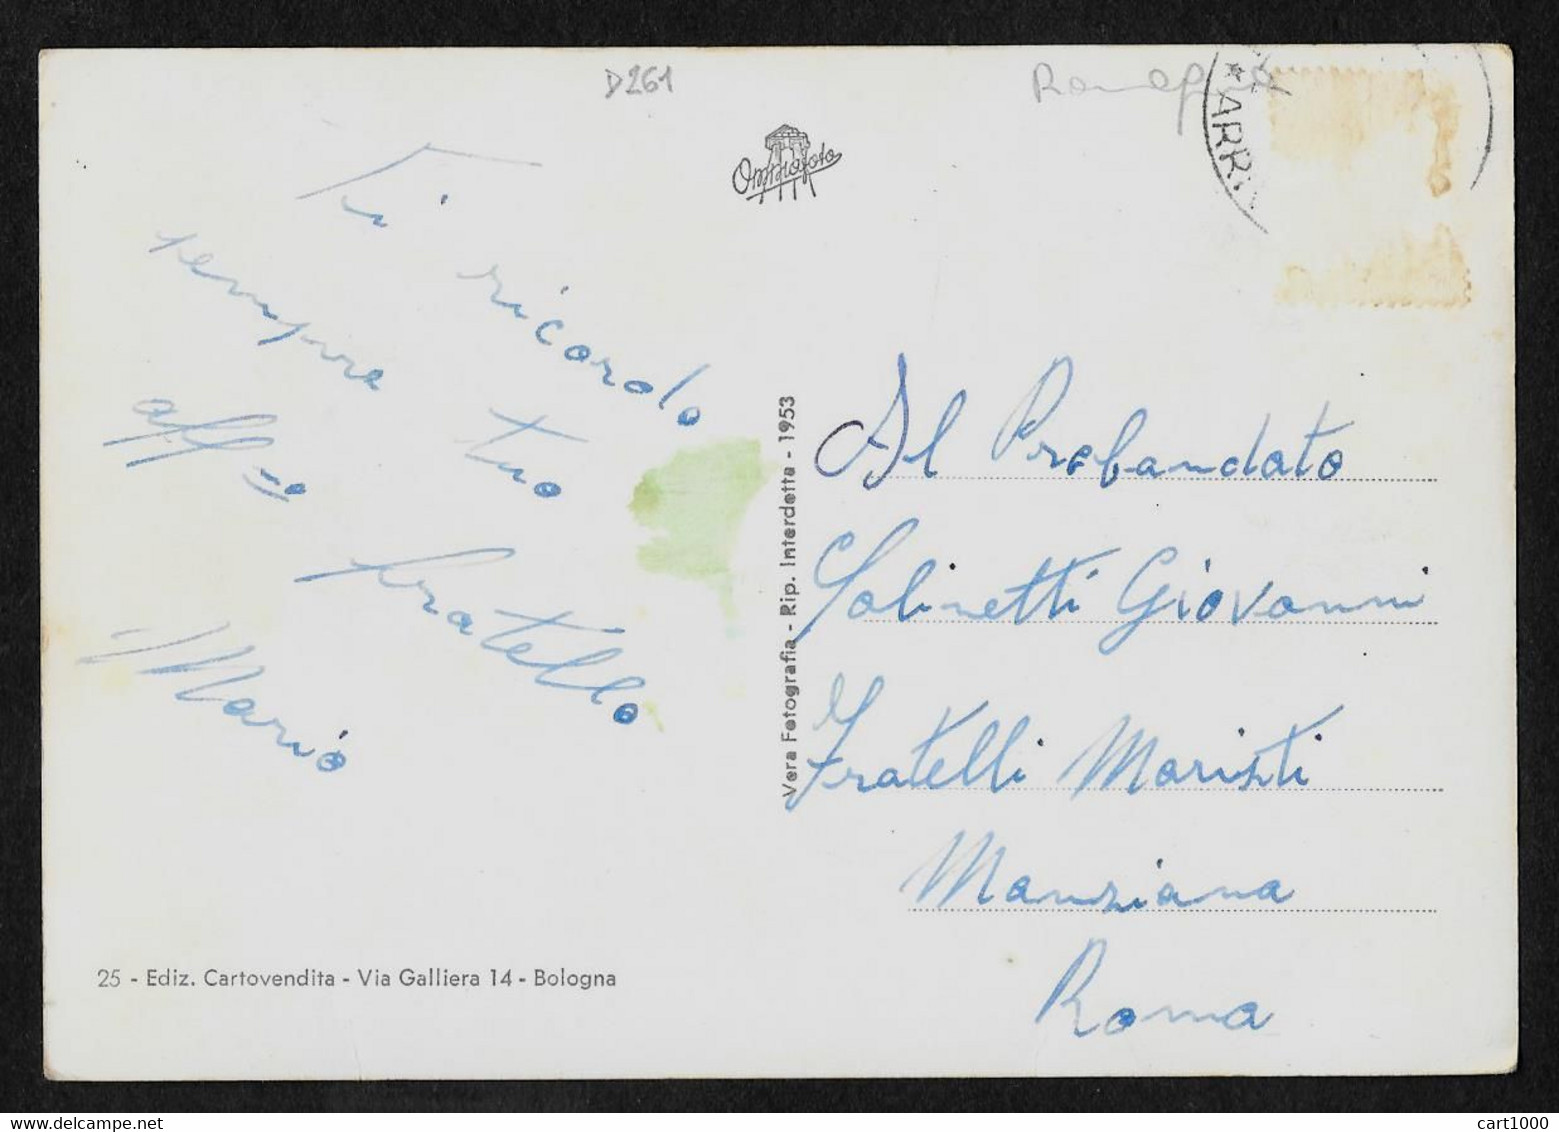 D261
Romagna
Omniafoto
* ARRI
Ti ricordo
sempre tuo
aff.mo fratello
Mario
Vera Fotografia - Rip. Interdetta - 1953
Al Probandato
Golinetti Giovanni
Fratelli Maristi
Manziana
Roma
25 - Ediz. Cartovendita - Via Galliera 14 - Bologna
cart1000